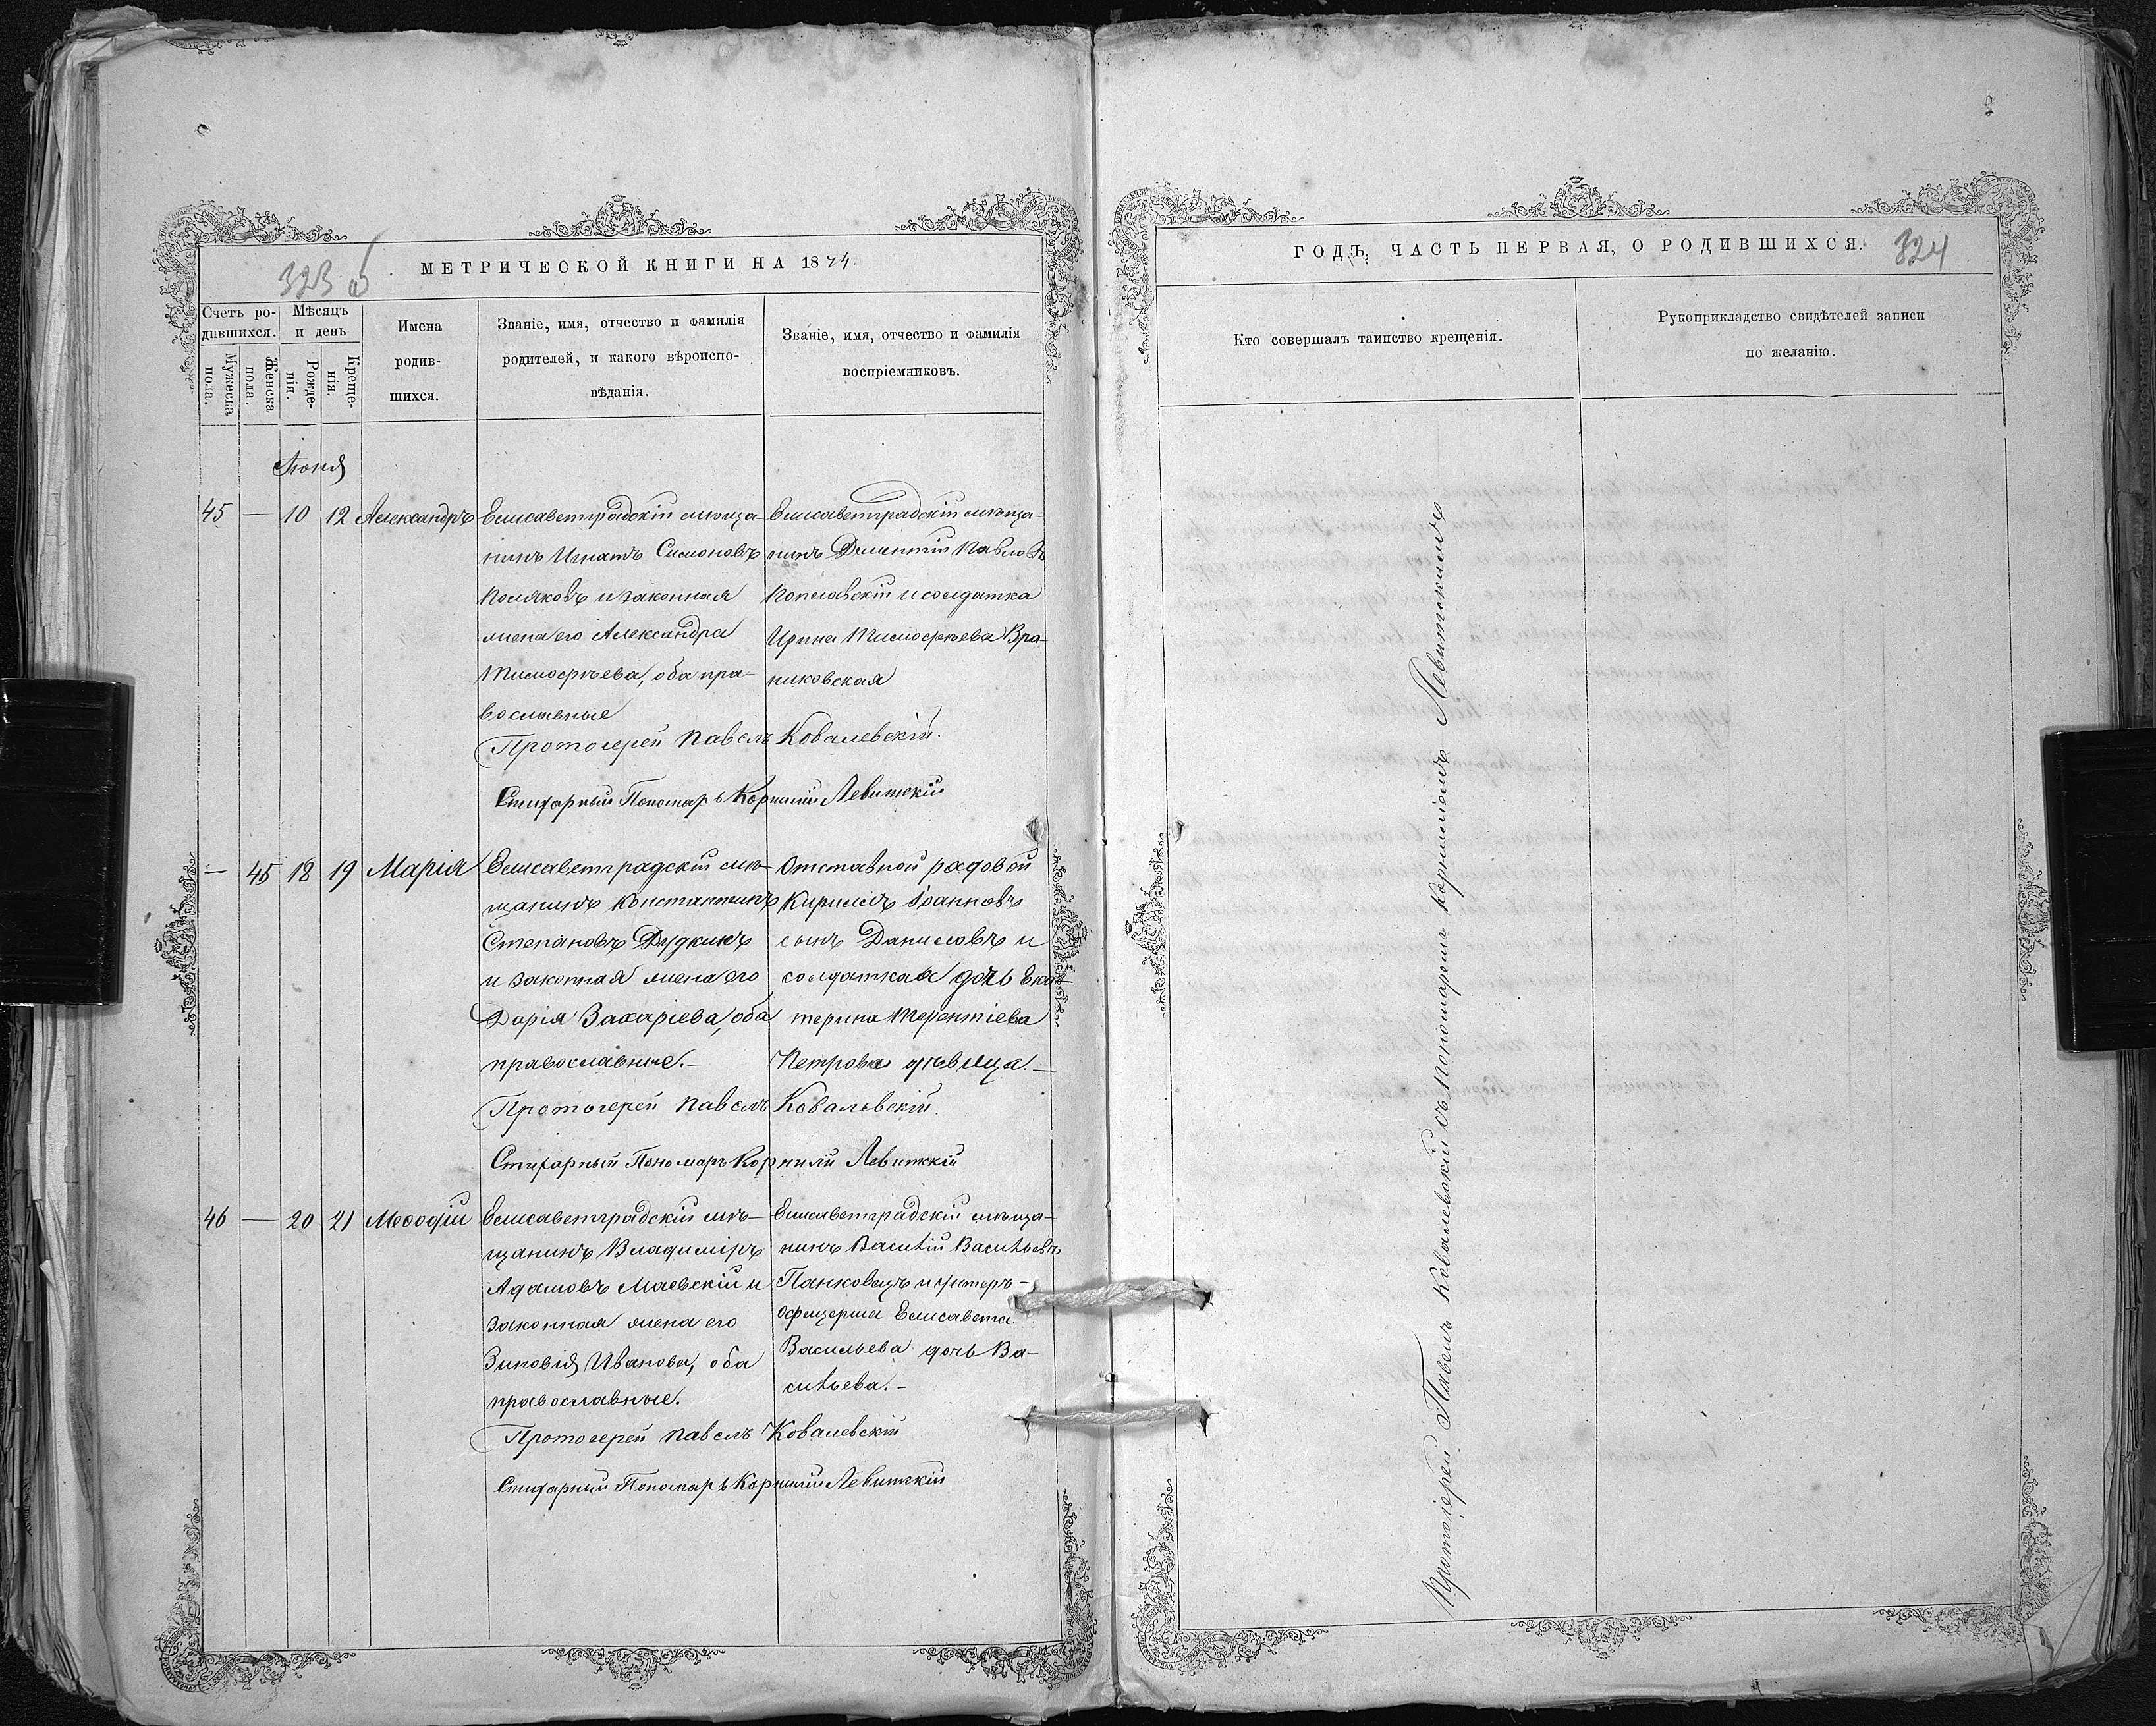 323 б
МЕТРИЧЕСКОЙ КНИГИ НА 1874.
Счетъ ро-
дившихся.
Мужеска
пола.
Женска
пола.
Мѣсяцъ
и день
Рожде-
нія.
Креще-
нія.
Имена
родив-
шихся.
Званіе, имя, отчество и фамилія
родителей, и какого вѣроиспо-
вѣданія.
Званіе, имя, отчество и фамилія
воспріемниковъ.
Іюня
45 — 10 12 Александръ
Елисаветградскій мѣща-
нинъ Игнатъ Симоновъ
Поляковъ и законная
жена его Александра
Тимофѣева, оба пра-
вославные
Елисаветградскій мѣща-
нинъ Дементій Павловъ
Поплавскій и солдатка
Ирина Тимофѣева Вра-
никовская
Протоіерей Павелъ Ковалевскій.
Стихарный Пономарь Корнилій Левитскій
— 45 18 19 Марія
Елисаветградскій мѣ-
щанинъ Константинъ
Степановъ Дудкинъ
и законная жена его
Дарія Захаріева, оба
православные.—
Отставной рядовой
Кириллъ Іоанновъ
сынъ Даниловъ и
солдатская дочь Ека-
терина Терентіева
Петрова дѣвица.—
Протоіерей Павелъ Ковалевскій.
Стихарный Пономарь Корнилій Левитскій
46 — 20 21 Меѳодій
Елисаветградскій мѣ-
щанинъ Владиміръ
Адамовъ Маевскій и
законная жена его
Зиновія Иванова, оба
православные.
Елисаветградскій мѣща-
нинъ Василій Васильевъ
Панковецъ и унтеръ-
офицерша Елисавета
Васильева дочь Ва-
сильева.—
Протоіерей Павелъ Ковалевскій
Стихарный Пономарь Корнилій Левитскій
ГОДЪ, ЧАСТЬ ПЕРВАЯ, О РОДИВШИХСЯ.
324
Кто совершалъ таинство крещенія.
Рукоприкладство свидѣтелей записи
по желанію.
Протоіерей Павелъ Ковалевскій съ пономаремъ Корниліемъ Левитскимъ